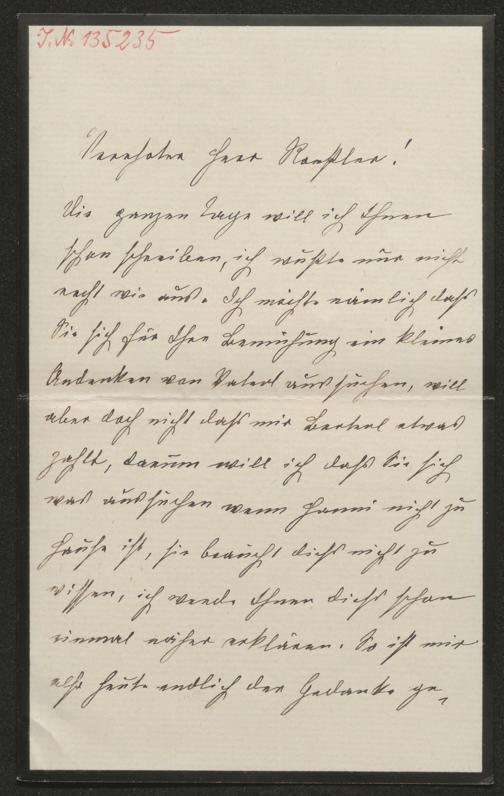 J. N. 135235
Verehrter Herr Roeßler!
Die ganzen Tage will ich Ihnen
schon schreiben, ich wußte nur nicht
recht wie aus. Ich möchte nämlich daß
Sie sich für Ihre Bemühung ein kleines
Andenken von Vaterl aussuchen, will
aber doch nicht daß mir Berterl etwas
zahlt, darum will ich daß Sie sich
was aussuchen wenn Hanni nicht zu
Hause ist, sie braucht dieß nicht zu
wissen, ich werde Ihnen dieß schon
einmal näher erklären. So ist mir
also heute endlich der Gedanke ge-